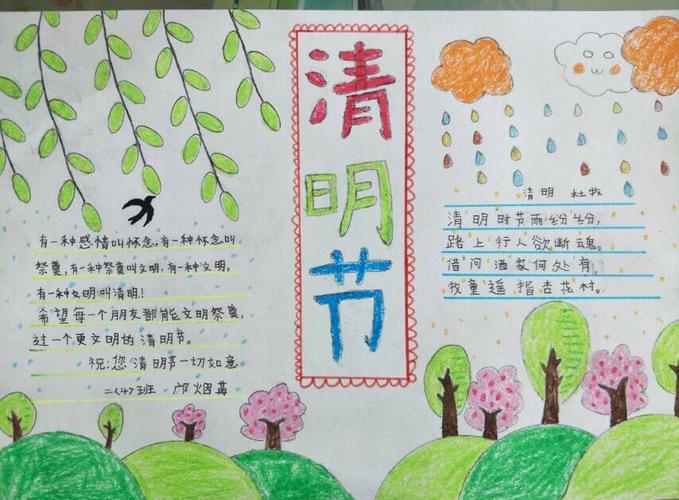 清明节
有一种感情叫怀念,有一种怀念叫
祭奠,有一种祭奠叫文明,有一种文明,
有一种文明叫清明!
希望每一个朋友都能文明祭奠,
过一个更文明的清明节。
祝:您清明节一切如意
二(4)班
清明 杜牧
清明时节雨纷纷,
路上行人欲断魂。
借问酒家何处有,
牧童遥指杏花村。